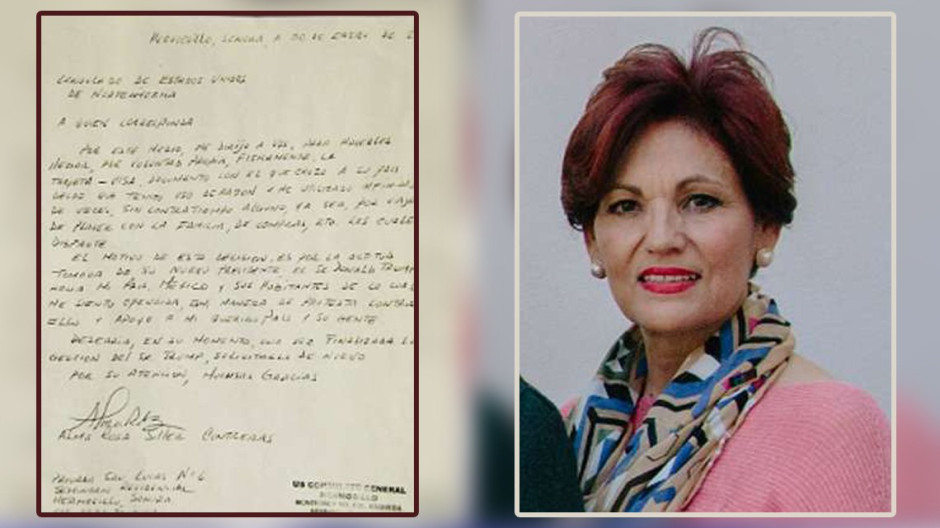 HERMOSILLO, SONORA, A 30 DE ENERO DE 2
CONSULADO DE ESTADOS UNIDOS
DE NORTEAMERICA
A QUIEN CORRESPONDA
POR ESTE MEDIO, ME DIRIJO A UDS, PARA HACERLES
LLEGAR, POR VOLUNTAD PROPIA, FISICAMENTE, LA
TARJETA - VISA, DOCUMENTO CON EL QUE CRUZO A SU PAIS
DESDE QUE TENGO USO DE RAZON Y HE UTILIZADO INFINIDAD
DE VECES, SIN CONTRATIEMPO ALGUNO, YA SEA, POR VIAJE
DE PLACER CON LA FAMILIA, DE COMPRAS, ETC. LES
DISFRUTE
EL MOTIVO DE ESTA DECISION, ES POR LA ACTITUD
TOMADA DE SU NUEVO PRESIDENTE EL SR DONALD TRUMP
HACIA MI PAIS, MEXICO Y SUS HABITANTES DE LO CUAL
ME SIENTO OFENDIDA, MANERA DE PROTESTA CONTRA
ELLO Y APOYO A MI QUERIDO PAIS Y SU GENTE.
DESEARIA, EN SU MOMENTO, UNA VEZ FINALIZADA LA
GESTION DEL SR. TRUMP, SOLICITARLA DE NUEVO
POR SU ATENCION, MUCHAS GRACIAS
ALMA ROSA CONTRERAS
PRIVADA SAN LUCAS Nº 6
RESIDENCIAL
HERMOSILLO, SONORA
US CONSULATE GENERAL
HERMOSILLO